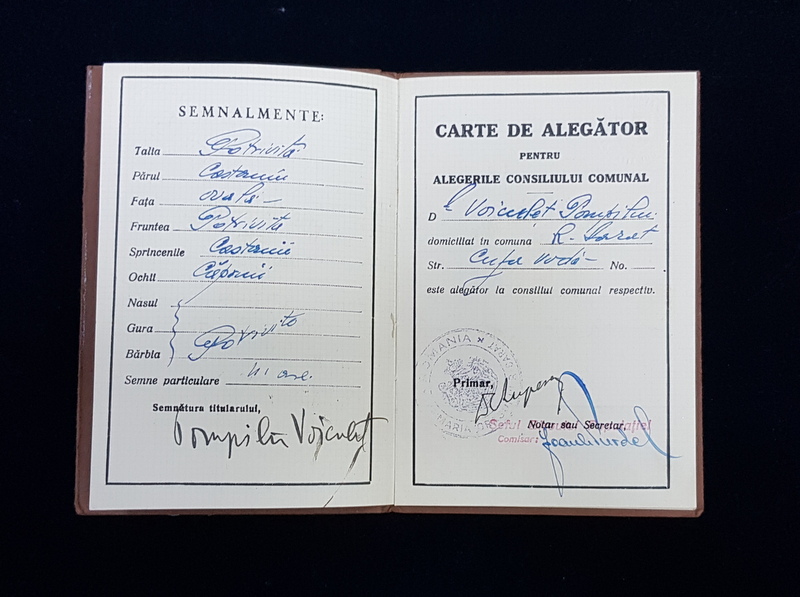 SEMNALMENTE:
Talia Potrivită
Părul Castaniu
Fața ovală
Fruntea Potrivită
Sprincenile Castanii
Ochii Căprui
Nasul
Gura
Bărbia Potrivite
Semne particulare n'are
Semnătura titularului,
Pompiliu Voiculeț
CARTE DE ALEGĂTOR
PENTRU
ALEGERILE CONSILIULUI COMUNAL
D l Voiculeț Pompiliu
domiciliat în comuna R. Sărat
Str. Cuza Vodă No.
este alegător la consiliul comunal respectiv.
ROMANIA
SĂRAT
PRIMĂRIA
Primar,
Șeful
Notar sau Secretar,
Comisar: